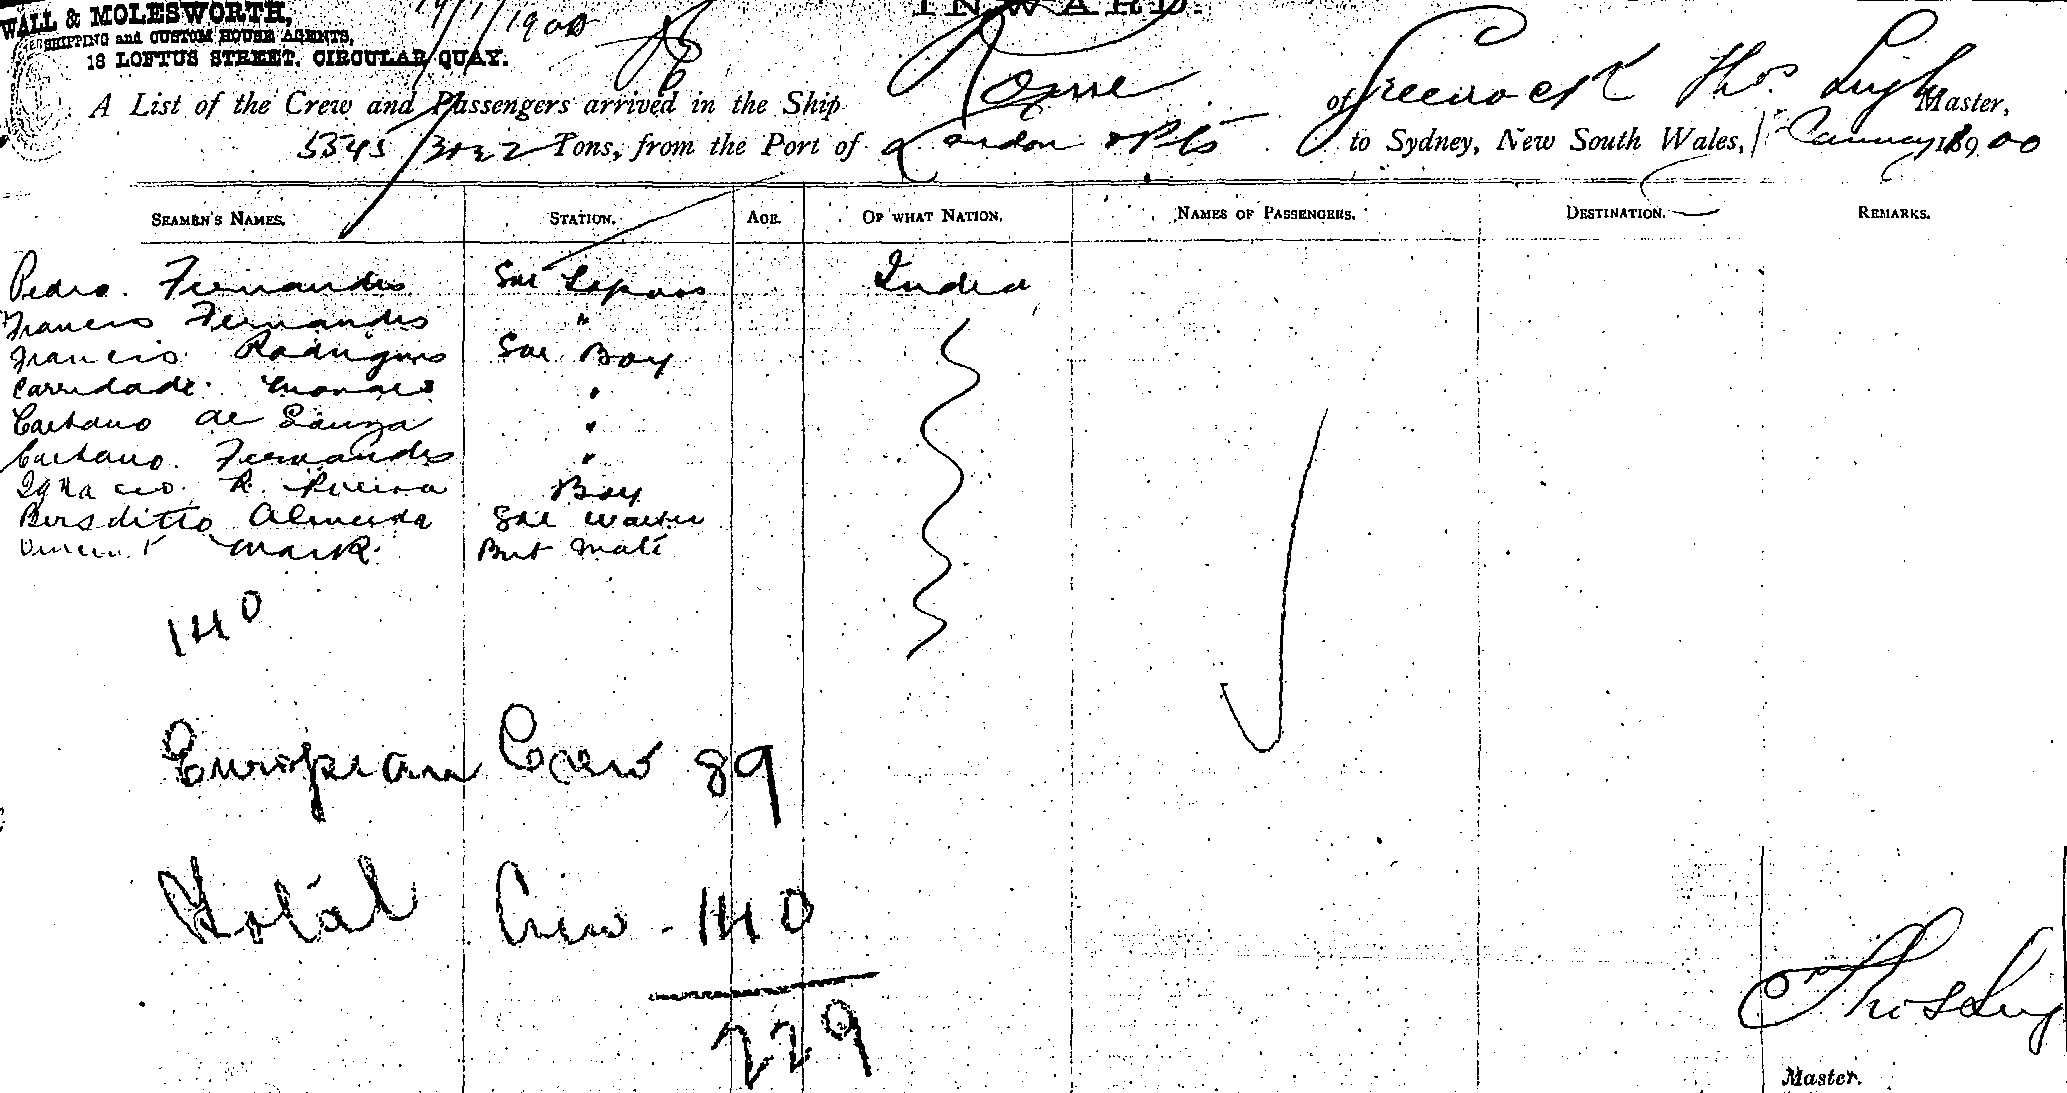 WALL & MOLESWORTH,
SHIPPING and CUSTOM HOUSE AGENTS,
18 LOFTUS STREET, CIRCULAR QUAY.
1/1900
INWARD.
A List of the Crew and Passengers arrived in the Ship Rome of Greenock Thos Master,
5545/3022 Tons, from the Port of London & Pts to Sydney, New South Wales, January 18900
SEAMEN'S NAMES. STATION. AGE. OF WHAT NATION. NAMES OF PASSENGERS. DESTINATION. REMARKS.
Pedro Fernandes Sal India
Francis Fernandes "
Francis Rodrigues Sal Boy
Caridade "
Caetano de Souza "
Caetano Fernandes "
Ignacio R. Boy
Almeida Sal waiter
Vincent Mark But Mate
140
European Crew 89
Total Crew - 140
229
Thos
Master.